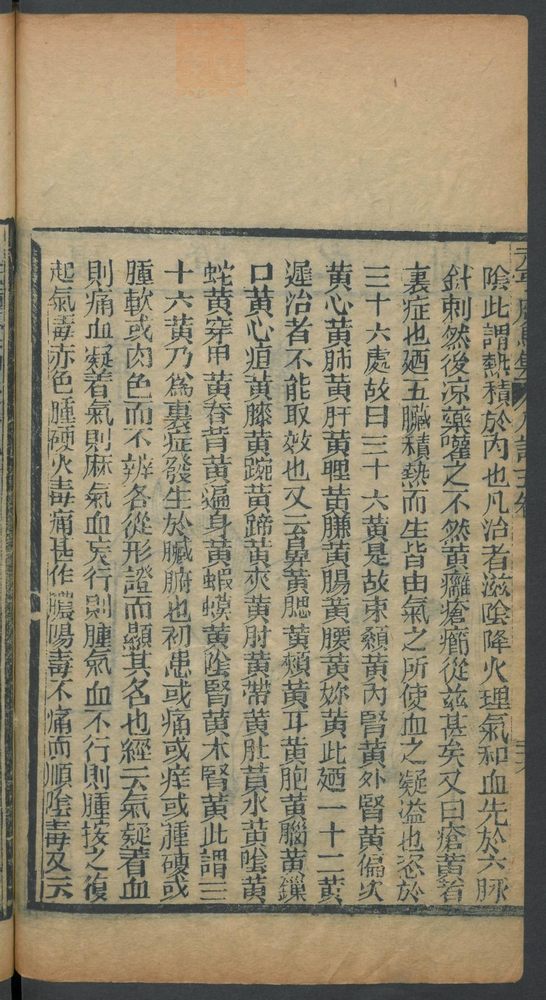 陰此謂熱積於內也凡治者滋陰降火理氣和血先於六脉
針刺然後凉藥嚾之不然黃癰瘡癤從茲甚矣又曰瘡黃者
裏症也廼五臟積熱而生皆由氣之所使血之凝溢也恣於
三十六處故曰三十六黃是故束顙黃內腎黃外腎黃偏次
黃心黃肺黃肝黃脾黃膁黃腸黃腰黃妳黃此廼一十二黃
遲治者不能取效也又云鼻黃腮黃頰黃耳黃胞黃腦黃鏁
口黃心疸黃膝黃踠黃蹄黃夾黃肘黃帶黃肚黃水黃喉黃
蛇黃穿甲黃脊背黃遍身黃蝦蟆黃陰腎黃木腎黃此謂三
十六黃乃為裏症發生於臟腑也初患或痛或痒或腫硬或
腫軟或肉色而不辨各從形證而顯其名也經云氣凝着血
則痛血凝着氣則麻氣血妄行則腫氣血不行則腫按之復
起氣毒赤色腫硬火毒痛甚作膿陽毒不痛而順陰毒又云